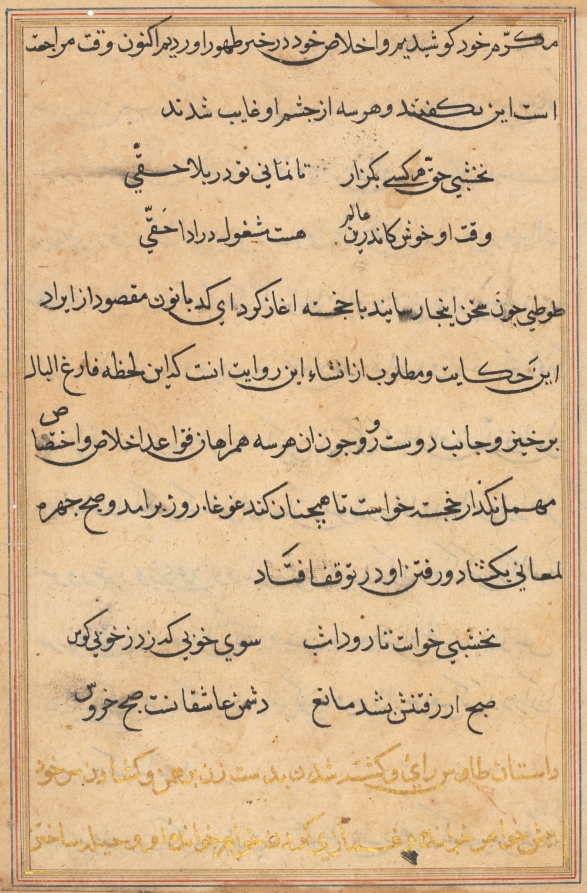 مکرم خود کوشیدیم و اخلاص خود در خیر ظهور اوردیم اکنون وقت مراجعت
است این بکفتند و هر سه از جشم او غایب شدند
نخشبی حق هر کسی بکزار تا نمانی تو در بلا حقّی
وقت او خوش کاندرین عالم هست مشغول در ادا حَقّی
طوطی جون سخن اینجا رسانید با خجسته اغاز کرد ای کدبانو مقصود از ایراد
این حکایت و مطلوب از انشاء این روایت انست که این لحظه فارغ البال
برخیز و جانب دوست رو و جون ان هر سه همراهان قواعد اخلاص و اختصاص
مهمل نکذار خجسته خواست تا همچنان کند غوغا روز برامد و صبح جهره
لمعانی بکشاد و رفتن او در توقف افتاد
نخشبی خواست تا رود امشب سوی خوبی که زد ز خوبی کوس
صبح از رفتنش بشد مانع دشمن عاشقانست صبح خروس
داستان طاوس رای و کشته شدن بدست زن برهمن و کشادن سر خود